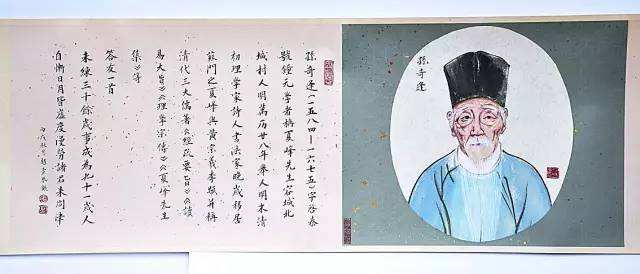 孫奇逢
孫奇逢(一五八四—一六七五)字啓泰
號鍾元學者稱夏峰先生容城北
城村人明萬历廿八年舉人明末清
初理學家詩人書法家晚歲移居
蘇門之夏峰與黃宗羲李顒并稱
清代三大儒著《 》《讀
易大旨》《理學宗傳》《夏峰先生
集》等
答友一首
未練三十餘歲事成為九十一歲人
自慚日月皆虛度漫勞諸君來問津